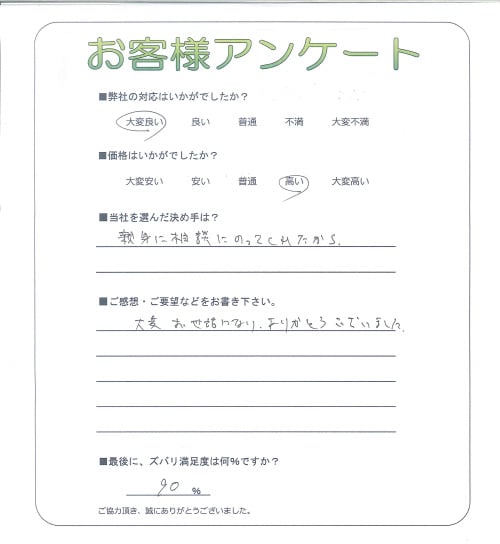 お客様アンケート
■弊社の対応はいかがでしたか？
大変良い 良い 普通 不満 大変不満
■価格はいかがでしたか？
大変安い 安い 普通 高い 大変高い
■当社を選んだ決め手は？
親身に相談にのってくれたから。
■ご感想・ご要望などをお書き下さい。
大変お世話になり、ありがとうございました。
■最後に、ズバリ満足度は何％ですか？
90 %
ご協力頂き、誠にありがとうございました。